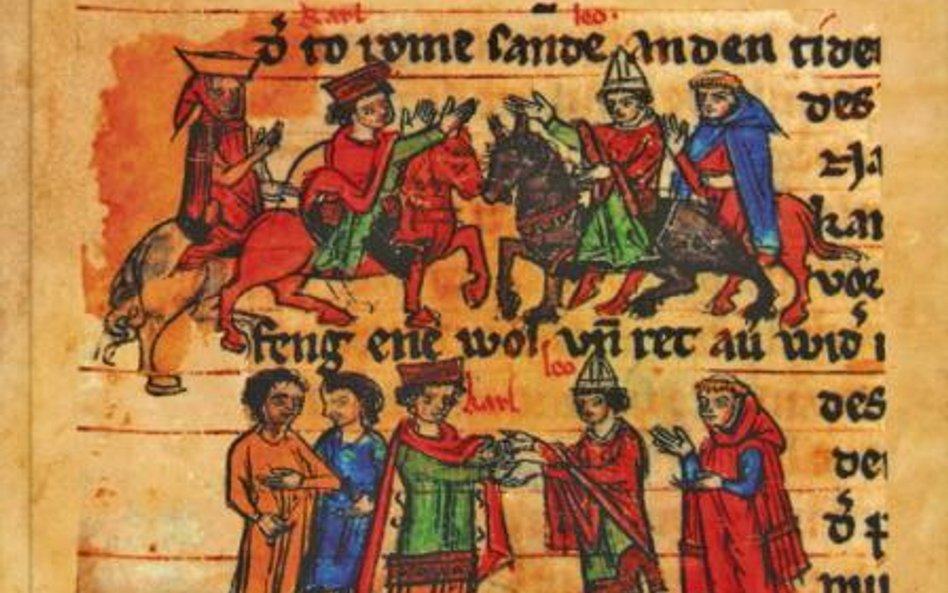 Karl leo.
d̉ to rome sande Anden tide
des
kar
vor
feng ene wol vn̄ ret au wid̉
leo
karl
des
de
d̉